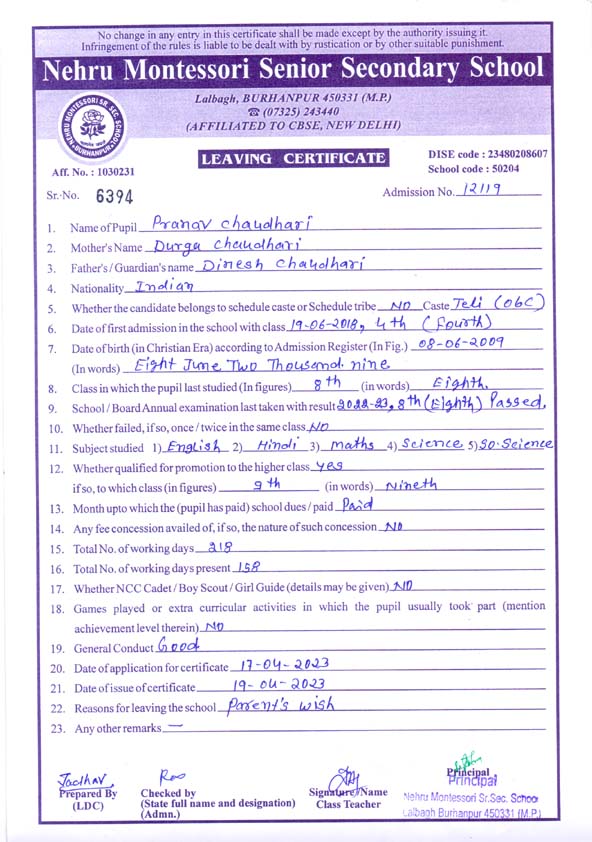 No change in any entry in this certificate shall be made except by the authority issuing it.
Infringement of the rules is liable to be dealt with by rustication or by other suitable punishment.
Nehru Montessori Senior Secondary School
Lalbagh, BURHANPUR 450331 (M.P.)
☎ (07325) 243440
(AFFILIATED TO CBSE, NEW DELHI)
NEHRU MONTESSORI SR. SEC. SCHOOL
BURHANPUR
LEAVING CERTIFICATE
DISE code : 23480208607
Aff. No. : 1030231 School code : 50204
Sr.-No. 6394 Admission No. 12119
1. Name of Pupil Pranav Chaudhari
2. Mother's Name Durga Chaudhari
3. Father's / Guardian's name Dinesh Chaudhari
4. Nationality Indian
5. Whether the candidate belongs to schedule caste or Schedule tribe NO Caste Teli (OBC)
6. Date of first admission in the school with class 19-06-2018, 4th (Fourth)
7. Date of birth (in Christian Era) according to Admission Register (In Fig.) 08-06-2009
(In words) Eight June Two Thousand nine
8. Class in which the pupil last studied (In figures) 8th (in words) Eighth.
9. School / Board Annual examination last taken with result 2022-23, 8th (Eighth) Passed.
10. Whether failed, if so, once / twice in the same class NO
11. Subject studied 1) English 2) Hindi 3) maths 4) Science 5) SO.Science
12. Whether qualified for promotion to the higher class yes
if so, to which class (in figures) 9th (in words) Nineth
13. Month upto which the (pupil has paid) school dues / paid Paid
14. Any fee concession availed of, if so, the nature of such concession NO
15. Total No. of working days 218
16. Total No. of working days present 158
17. Whether NCC Cadet / Boy Scout / Girl Guide (details may be given) NO
18. Games played or extra curricular activities in which the pupil usually took part (mention
achievement level therein) NO
19. General Conduct Good
20. Date of application for certificate 17-04-2023
21. Date of issue of certificate 19-04-2023
22. Reasons for leaving the school Parent's wish
23. Any other remarks —
Jadhav
Prepared By
(LDC)
Checked by
(State full name and designation)
(Admn.)
Signature/Name
Class Teacher
Principal
Principal
Nehru Montessori Sr.Sec. School
Lalbagh Burhanpur 450331 (M.P.)